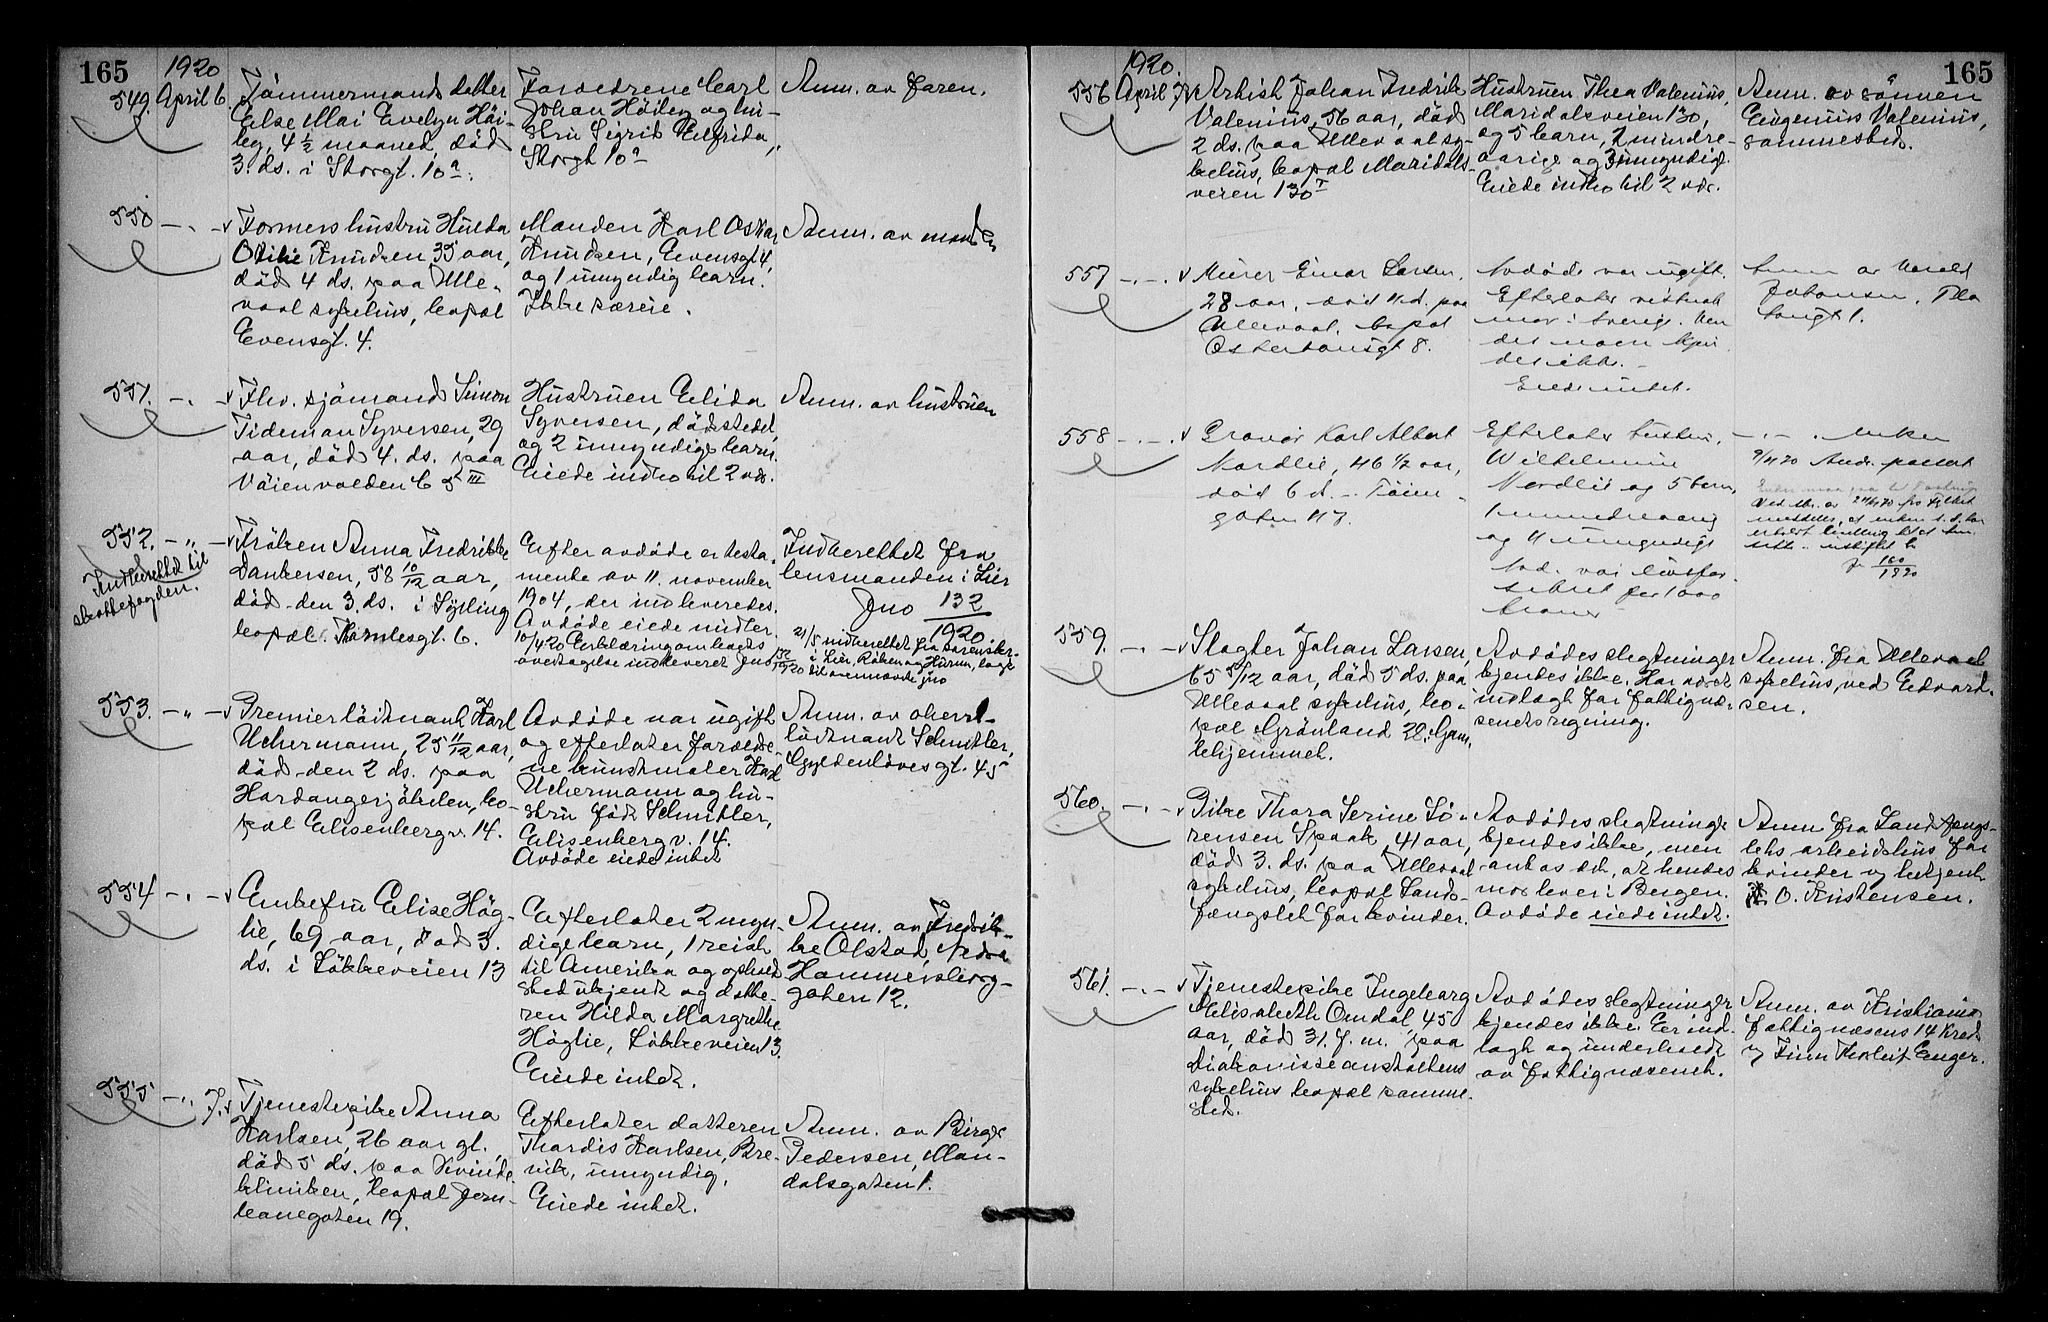 165
1920
549. April 6.
Tömmermands datter
Else Mai Evelyn Höi-
by, 4 1/2 maaned, död
3. ds. i Storgt. 10a.
Forældrene Carl
Johan Höiby og hu-
stru Sigrid Elfrida,
Storgt 10a
Anm. av faren.
550 - . -
Formers hustru Hulda
Otilie Knudsen 35 aar,
död 4 ds. paa Ulle-
vaal sykehus, bopæl
Evensgt. 4.
Manden Karl Oskar
Knudsen, Evensgt 4,
og 1 umyndig barn.
Ikke særeie.
Anm. av manden
551. - . -
Fhv. sjömand Simon
Tideman Syversen, 29
aar, död 4. ds. paa
Vöienvolden 6 5 III
Hustruen Elida
Syversen, dödsstedet,
og 2 umyndige barn.
Eiede indbo til 2 vdr.
Anm. av hustruen
552. - " -
Indberettet til
skattefogden.
Fröken Anna Fredrikke
Dankersen, 58 10/12 aar,
död den 3. ds. i Sylling
bopæl Thomlesgt. 6.
Efter avdöde er testa-
mente av 11. november
1904, der indleveredes.
Avdöde eiede midler.
10/4 20 Erklæring om boets
overtagelse indleveret Jno 132/1920
Indberettet fra
lensmanden i Lier
Jno 132
1920.
21/5 indberettet fra sorenskr.
i Lier, Röken og Hurum, lagt
til ovennævnte jno
553. - " -
Premierlöitnant Karl
Uchermann, 25 11/12 aar,
död den 2 ds. paa
Hardangerjökulen, bo-
pæl Elisenbergv. 14.
Avdöde var ugift
og efterlater forældre-
ne kunstmaler Karl
Uchermann og hu-
stru född Schnitler,
Elisenbergv. 14.
Avdöde eiede intet
Anm. av oberst-
löitnant Schnitler,
Gyldenlövesgt. 45
554 - . -
Enkefru Elise Hög-
lie, 69 aar, död 3.
ds. i Lökkeveien 13
Efterlater 2 myn-
dige barn, 1 reist
til Amerika og opholds-
sted ukjendt og datte-
ren Hilda Margrethe
Höglie, Lökkeveien 13.
Eiede intet.
Anm. av Fredrik-
ke Olstad, Nedre
Hammersborg-
gaten 12.
555 - . 7.
Tjenestepike Anna
Karlsen, 26 aar gl.,
död 5 ds. paa Kvinde-
kliniken, bopæl Jern-
banegaten 19.
Efterlater datteren
Thordis Karlsen, Bre-
vik, umyndig.
Eiede intet.
Anm. av Birger
Pedersen, Man-
dalsgaten 1.
165
1920.
556 April 7.
Artist Johan Fredrik
Valenius, 56 aar, död
2 ds. paa Ullevaal sy-
kehus, bopæl Maridals-
veien 130 I
Hustruen Thea Valenius,
Maridalsveien 130,
og 5 barn, 2 mindre-
aarige og 3 umyndige.
Eiede indbo til 2 vdr.
Anm. av sönnen
Eugenius Valenius,
sammesteds.
557 - . -
Murer Einar Larsen,
28 aar, död 4 d. paa
Ullevaal, bopæl
Osterhausgt 8.
Avdöde var ugift.
Efterlater
mor i Sverige.
der navn kjen
des ikke. -
Eiede intet.
Anm av Harald
Johansen,
gt 1.
558 - . -
Gravör Karl Albert
Nordlie, 46 1/2 aar,
död 6 d. - Töien-
gaten 47.
Efterlater hustru,
Wilhelmine
Nordlie og 5 barn,
1 mindreaarig
og 4 umyndige
Avd. var livsfor-
sikret for 1000
kroner
- . - . enken
160
1920
559. - . -
Slagter Johan Larsen,
65 5/12 aar, död 5 ds. paa
Ullevaal sykehus, bo-
pæl Grönland 28, Gam-
lehjemmet.
Avdödes slegtninger
kjendes ikke. Har været
indlagt for fattigvæ-
senets regning.
Anm. fra Ullevaal
sykehus, ved Edvard-
sen.
560. - . -
Pike Thora Serine Sö-
rensen Spaak, 41 aar,
död 3. ds. paa Ullevaal
sykehus, bopæl Lands-
fængslet for kvinder.
Avdödes slegtninge
kjendes ikke, men
antas det, at hendes
mor lever i Bergen.
Avdöde eiede intet.
Anm fra Landsfængs-
lets arbeidshus for
kvinder ved betjent
O. Kristensen.
561. - . -
Tjenestepike Ingeborg
Elisabeth Omdal, 45
aar, död 31. f. m. paa
Diakonisseanstaltens
sykehus bopæl samme-
sted.
Avdödes slegtninger
kjendes ikke. Er ind-
lagt og underholdt
av fattigvæsenet.
Anm. av Kristiania
fattigvæsens 14 kreds
v Finn Thorleif Enger.